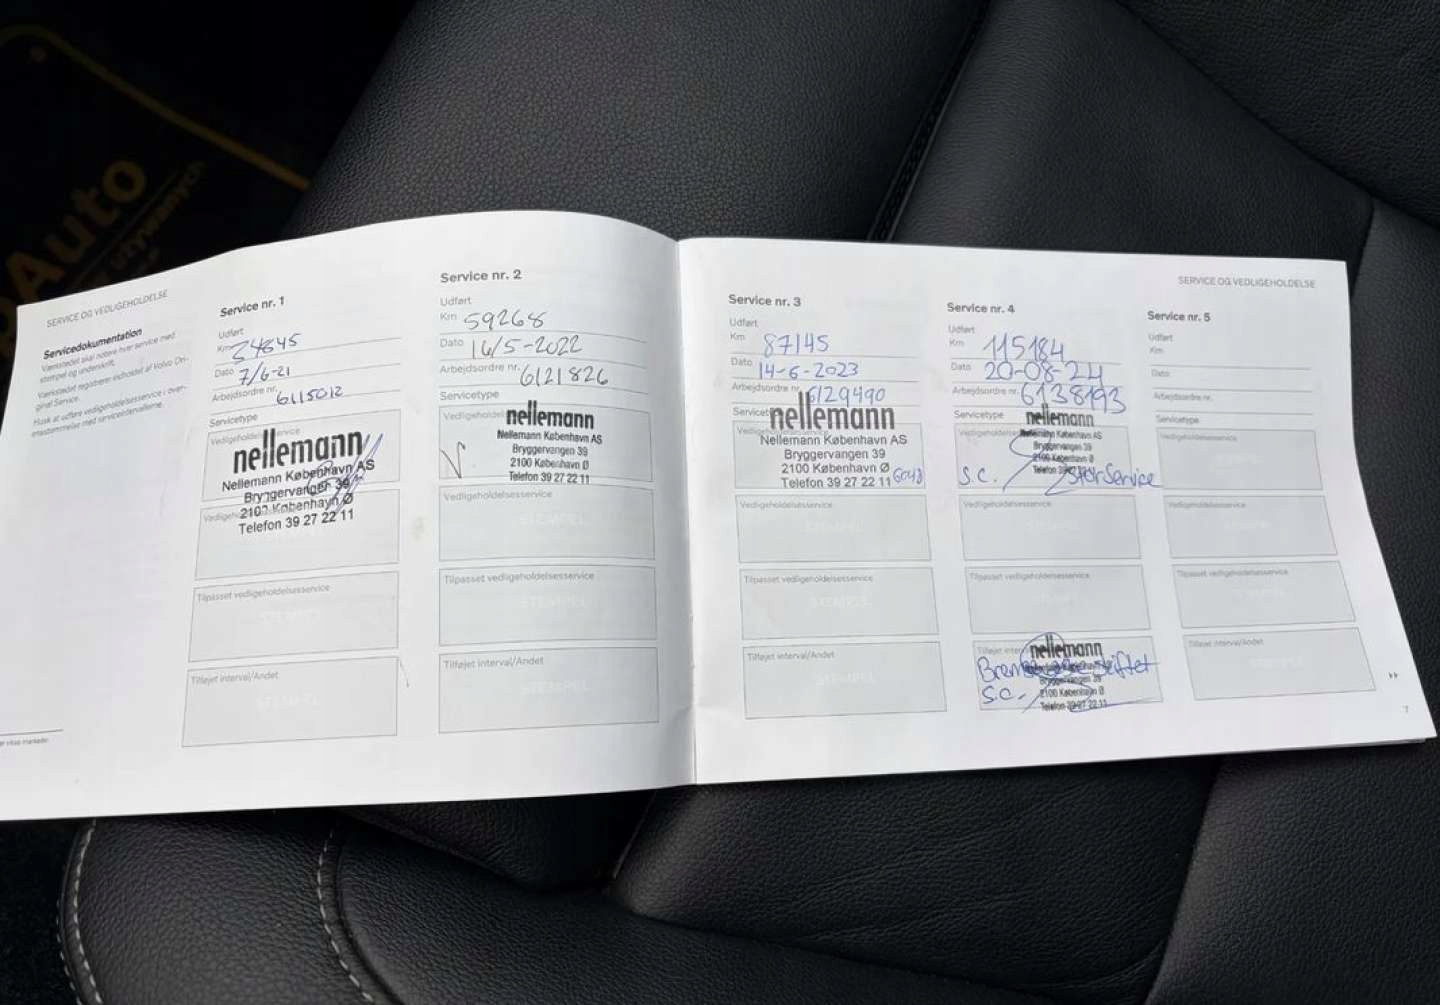 Auto
używanych
SERVICE OG VEDLIGEHOLDELSE
Servicedokumentation
Værkstedet skal notere hver service med
stempel og underskrift.
Værkstedet registrerer indholdet af Volvo Ori-
ginal Service.
Husk at udføre vedligeholdelsesservice i over-
ensstemmelse med serviceintervallerne.
Service nr. 1
Udført
Km 34645
Dato 7/6-21
Arbejdsordre nr. 6115012
Servicetype
Vedligeholdelsesservice
nellemann
Nellemann København AS
Bryggervangen 39
2100 København Ø
Telefon 39 27 22 11
Tilpasset vedligeholdelsesservice
STEMPEL
Tilføjet interval/Andet
STEMPEL
Service nr. 2
Udført
Km 59268
Dato 16/5-2022
Arbejdsordre nr. 6121826
Servicetype
nellemann
Nellemann København AS
Bryggervangen 39
2100 København Ø
Telefon 39 27 22 11
Vedligeholdelsesservice
STEMPEL
Tilpasset vedligeholdelsesservice
STEMPEL
Tilføjet interval/Andet
STEMPEL
SERVICE OG VEDLIGEHOLDELSE
Service nr. 3
Udført
Km 87145
Dato 14-6-2023
Arbejdsordre nr. 6129490
nellemann
Nellemann København AS
Bryggervangen 39
2100 København Ø
Telefon 39 27 22 11 6048
Vedligeholdelsesservice
STEMPEL
Tilpasset vedligeholdelsesservice
STEMPEL
Tilføjet interval/Andet
STEMPEL
Service nr. 4
Udført
Km 115184
Dato 20-08-24
Arbejdsordre nr. 6138193
Servicetype
nellemann
Nellemann København AS
Bryggervangen 39
2100 København Ø
Telefon 39
S.C. Stor Service
Vedligeholdelsesservice
Tilpasset vedligeholdelsesservice
nellemann
skiftet
S.C.
Bryggervangen 39
2100 København Ø
Telefon 39 27 22 11
Service nr. 5
Udført
Km
Dato
Arbejdsordre nr.
Servicetype
Vedligeholdelsesservice
Vedligeholdelsesservice
STEMPEL
Tilpasset vedligeholdelsesservice
STEMPEL
Tilføjet interval/Andet
STEMPEL
7